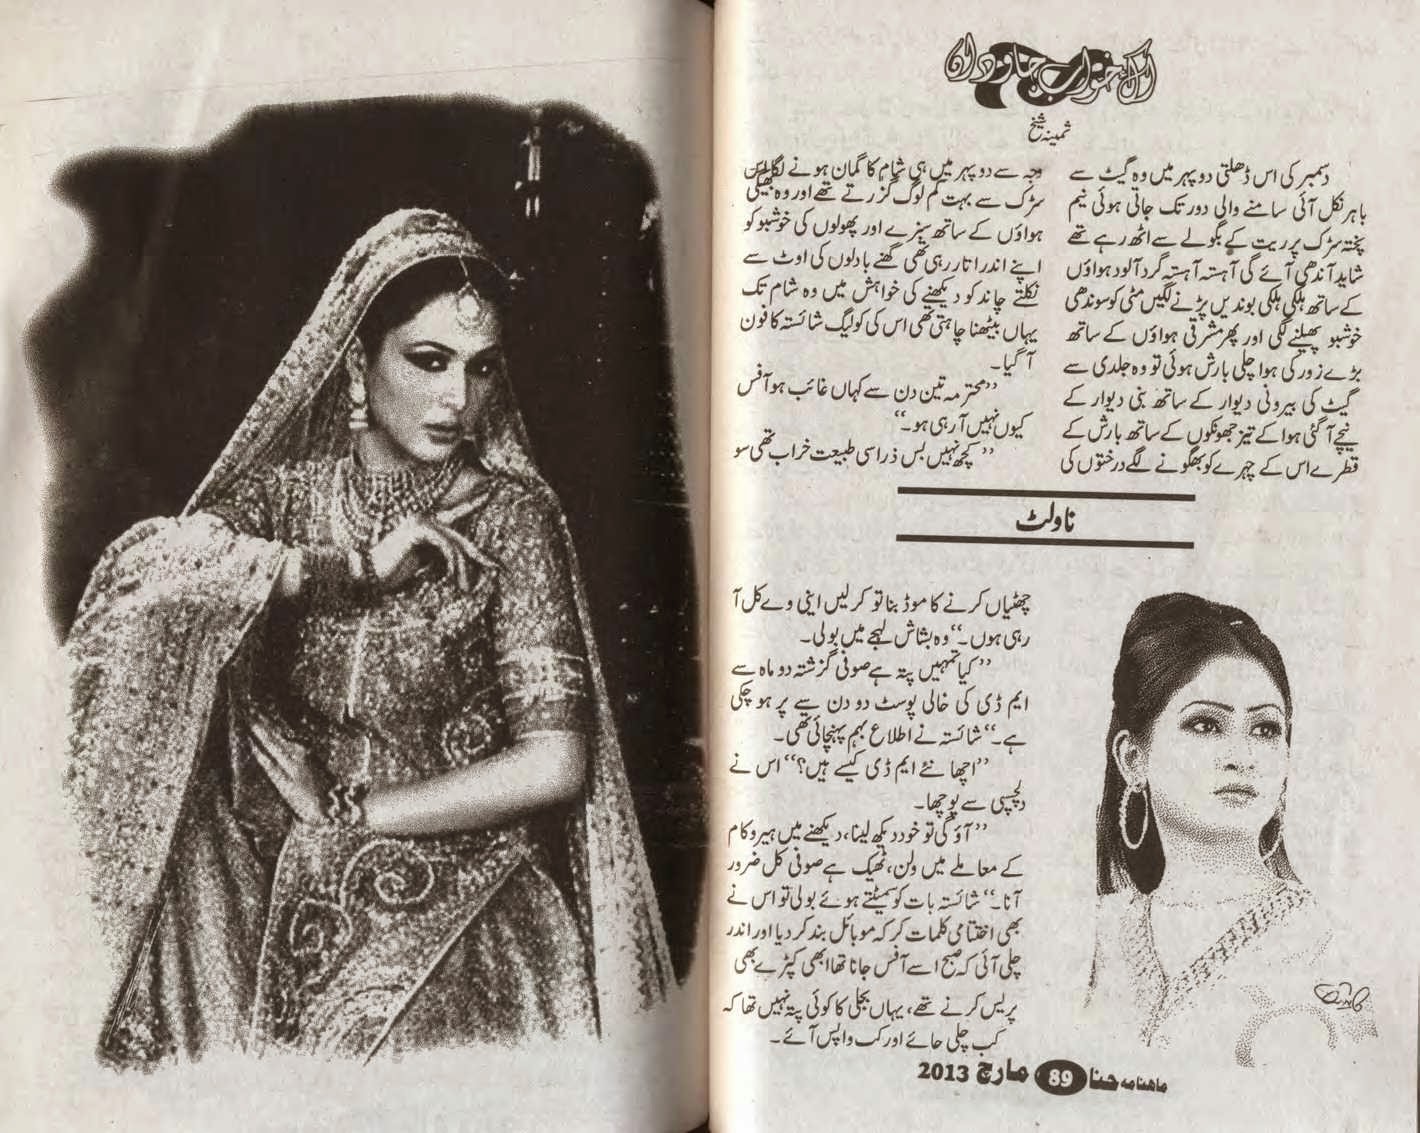 اک خواب جاوداں
ثمینہ شیخ
دسمبر کی اس ڈھلتی دوپہر میں وہ گیٹ سے
باہر نکل آئی سامنے والی دور تک جاتی ہوئی نیم
پختہ سڑک پر ریت کے بگولے سے اٹھ رہے تھے
شاید آندھی آئے گی آہستہ آہستہ گرد آلود ہواؤں
کے ساتھ ہلکی ہلکی بوندیں پڑنے لگیں مٹی کو سوندھی
خوشبو پھیلنے لگی اور پھر مشرقی ہواؤں کے ساتھ
بڑے زور کی ہوا چلی بارش ہوئی تو وہ جلدی سے
گیٹ کی بیرونی دیوار کے ساتھ بنی دیوار کے
نیچے آ گئی ہوا کے تیز جھونکوں کے ساتھ بارش کے
قطرے اس کے چہرے کو بھگونے لگے درختوں کی
وجہ سے دوپہر میں ہی شام کا گمان ہونے لگا اس
سڑک سے بہت کم لوگ گزرتے تھے اور وہ بھیگی
ہواؤں کے ساتھ سبزے اور پھولوں کی خوشبو کو
اپنے اندر اتار رہی تھی گھنے بادلوں کی اوٹ سے
نکلتے چاند کو دیکھنے کی خواہش میں وہ شام تک
یہاں بیٹھنا چاہتی تھی اس کی کولیگ شائستہ کا فون
آ گیا۔
”محترمہ تین دن سے کہاں غائب ہو آفس
کیوں نہیں آ رہی ہو۔“
”کچھ نہیں بس ذرا سی طبیعت خراب تھی سو
ناولٹ
چھٹیاں کرنے کا موڈ بنا تو کر لیں اینی وے کل آ
رہی ہوں۔“ وہ بشاش لہجے میں بولی۔
”کیا تمہیں پتہ ہے صوفی گزشتہ دو ماہ سے
ایم ڈی کی خالی پوسٹ دو دن سے پر ہو چکی
ہے۔“ شائستہ نے اطلاع بہم پہنچائی تھی۔
”اچھا نئے ایم ڈی کیسے ہیں؟“ اس نے
دلچسپی سے پوچھا۔
”آؤ گی تو خود دیکھ لینا، دیکھنے میں ہیرو کام
کے معاملے میں ولن، ٹھیک ہے صوفی کل ضرور
آنا۔“ شائستہ بات کو سمیٹتے ہوئے بولی تو اس نے
بھی اختتامی کلمات کر کہ موبائل بند کر دیا اور اندر
چلی آئی کہ صبح اسے آفس جانا تھا ابھی کپڑے بھی
پریس کرنے تھے، یہاں بجلی کا کوئی پتہ نہیں تھا کہ
کب چلی جائے اور کب واپس آئے۔
ماہنامہ حنا 89 مارچ 2013